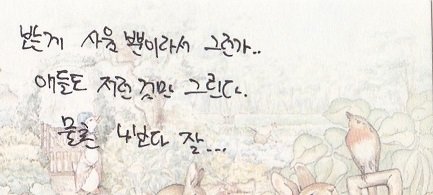 보는게 싸움 뿐이라서 그런가..
애들도 저런 것만 그린다.
물론 나보다 잘...